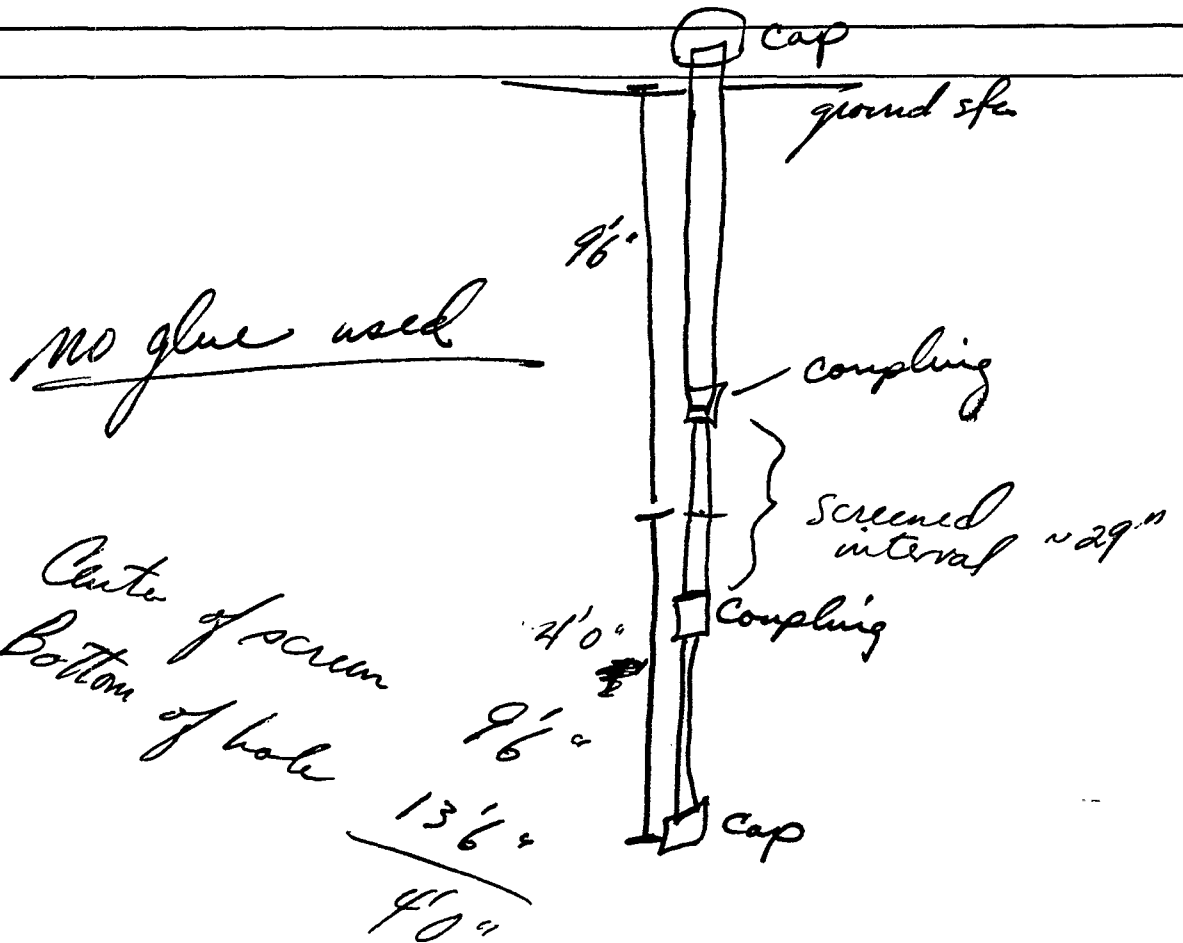 cap
ground sfc
9'6"
no glue used
coupling
screened
interval ~29"
Coupling
4'0"
Center of screen 9'6"
Bottom of hole 13'6"
4'0"
cap